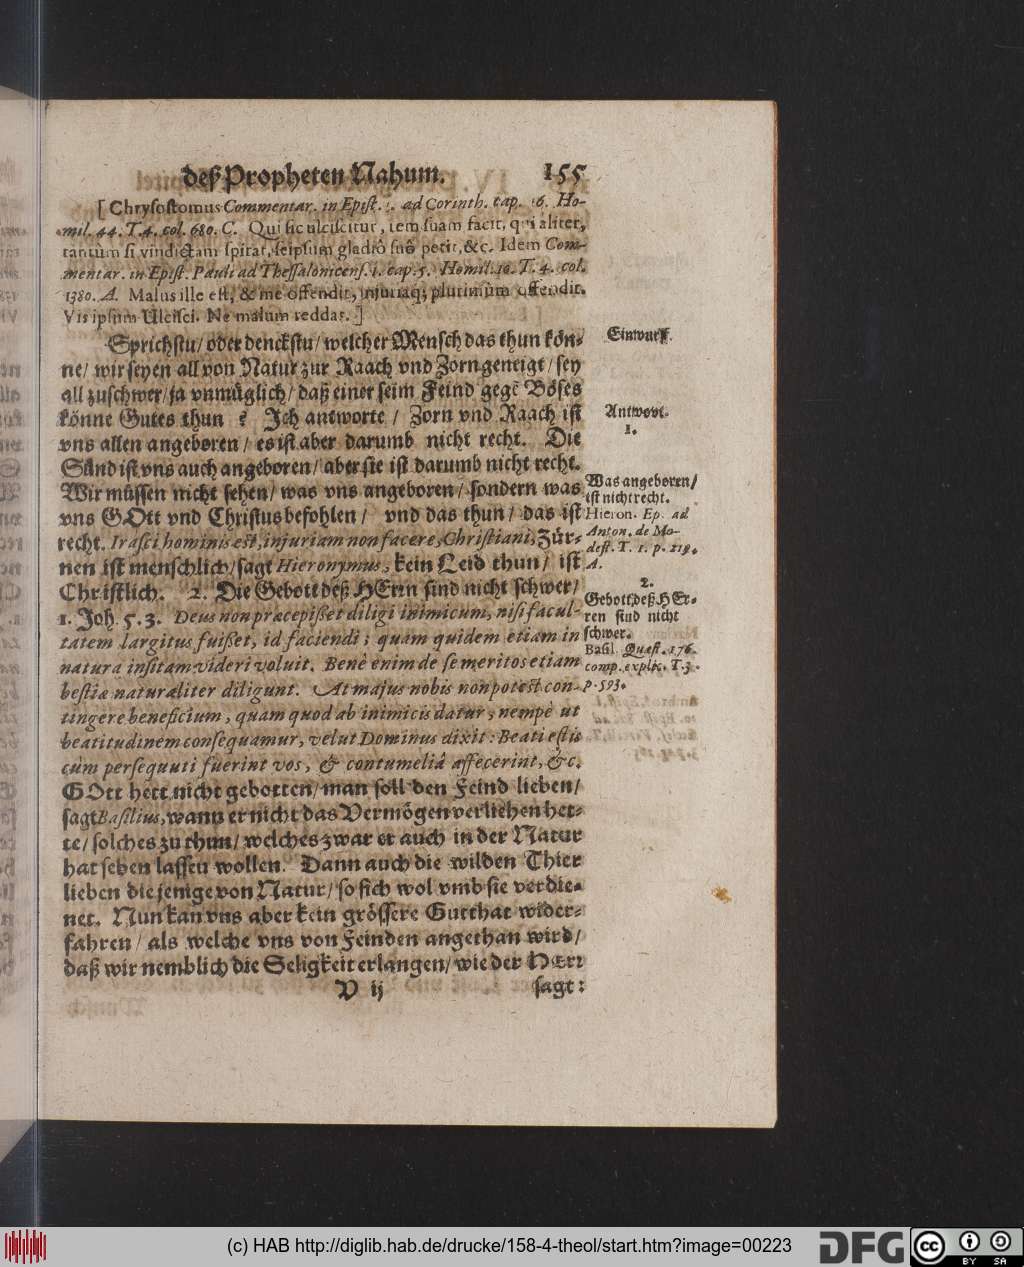 deß Propheten Nahum. 155
[ Chrysostomus Commentar. in Epist. ad Corinth. cap. 16. Ho-
mil. 44. T. 4. col. 680. C. Qui sic ulciscitur, rem suam facit, qui aliter,
tantùm si vindictam spirat, seipsum gladiô suô petit, &c. Idem Com-
mentar. in Epist. Pauli ad Thessalonicens. 1. cap. 5. Homil. 10. T. 4. col.
1380. A. Malus ille est, & me offendit, injuriaq; plurimùm offendit.
Vis ipsum Ulcisci. Ne malum reddas. ]
Sprichstu/ oder denckstu/ welcher Mensch das thun kön-
ne/ wir seyen all von Natur zur Raach vnd Zorn geneigt/ sey
all zu schwer/ ja vnmüglich/ daß einer seim Feind gegẽ Böses
könne Gutes thun ? Ich antworte / Zorn vnd Raach ist
vns allen angeboren / es ist aber darumb nicht recht. Die
Sünd ist vns auch angeboren/ aber sie ist darumb nicht recht.
Wir müssen nicht sehen/ was vns angeboren/ sondern was
vns GOtt vnd Christus befohlen / vnd das thun / das ist
recht. Irasci hominis est, injuriam non facere, Christiani, Zür-
nen ist menschlich/ sagt Hieronymus, kein Leid thun / ist
Christlich. 2. Die Gebott deß HErrn sind nicht schwer/
1. Joh. 5. 3. Deus non præcepißet diligi inimicum, nisi facul-
tatem largitus fuißet, id faciendi; quam quidem etiam in
natura insitam videri voluit. Benè enim de se meritos etiam
bestiæ naturaliter diligunt. At majus nobis non potest con-
tingere beneficium, quam quod ab inimicis datur; nempè ut
beatitudinem consequamur, velut Dominus dixit: Beati estis
cùm persequuti fuerint vos, & contumeliâ affecerint, &c.
GOtt hett nicht gebotten/ man soll den Feind lieben/
sagt Basilius, wann er nicht das Vermögen verliehen het-
te/ solches zu thun/ welches zwar er auch in der Natur
hat sehen lassen wollen. Dann auch die wilden Thier
lieben die jenige von Natur/ so sich wol vmb sie verdie-
net. Nun kan vns aber kein grössere Gutthat wider-
fahren / als welche vns von Feinden angethan wird/
daß wir nemblich die Seligkeit erlangen/ wie der HErr
V ij sagt:
Einwurff.
Antwort.
1.
Was angeboren/
ist nicht recht.
Hieron. Ep. ad
Anton. de Mo-
dest. T. 1. p. 219.
A.
2.
Gebott deß HEr-
ren sind nicht
schwer.
Basil. Quæst. 176.
comp. explic. T. 3.
p. 593.
(c) HAB http://diglib.hab.de/drucke/158-4-theol/start.htm?image=00223
DFG
cc
BY SA